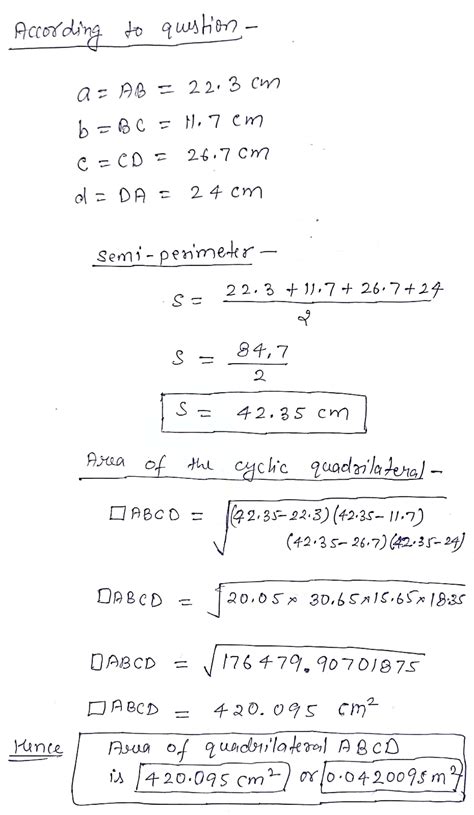 According to question -
a = AB = 22.3 cm
b = BC = 11.7 cm
c = CD = 26.7 cm
d = DA = 24 cm
Semi-perimeter -
S = 22.3 + 11.7 + 26.7 + 24
2
S = 84.7
2
S = 42.35 cm
Area of the cyclic quadrilateral -
□ABCD = √(42.35-22.3)(42.35-11.7)
(42.35-26.7)(42.35-24)
□ABCD = √20.05 × 30.65 × 15.65 × 18.35
□ABCD = √176479.90701875
□ABCD = 420.095 cm²
Hence Area of quadrilateral ABCD
is 420.095 cm² or 0.0420095 m²